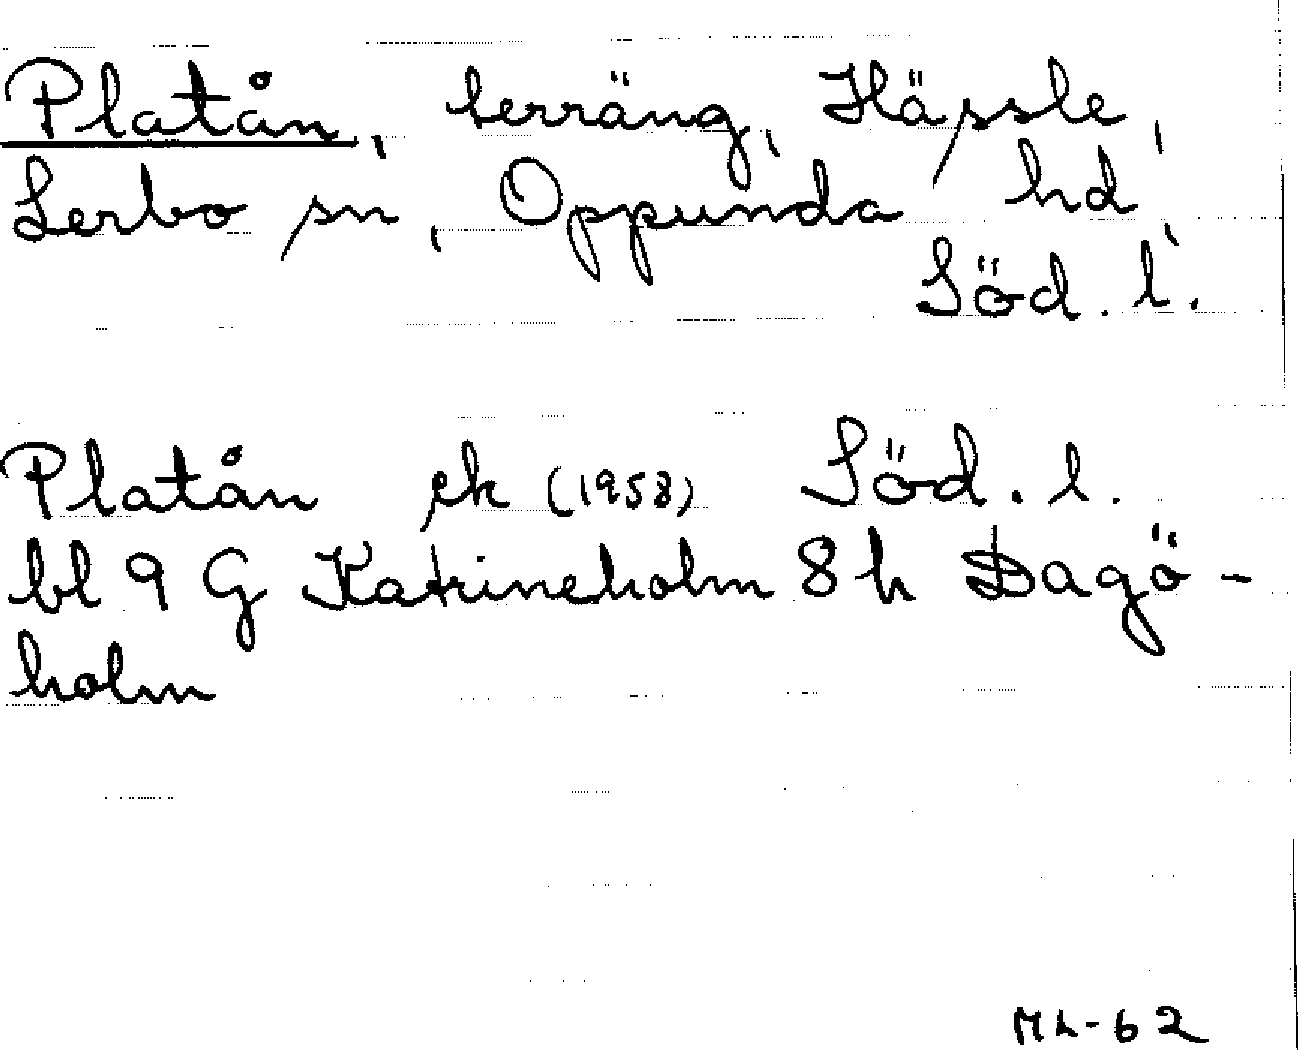 Platån, terräng, Hässle,
Lerbo sn, Oppunda hd,
Söd. l.
Platån ek (1958) Söd. l.
bl 9 G Katrineholm 8 h Dagö-
holm
ML-62